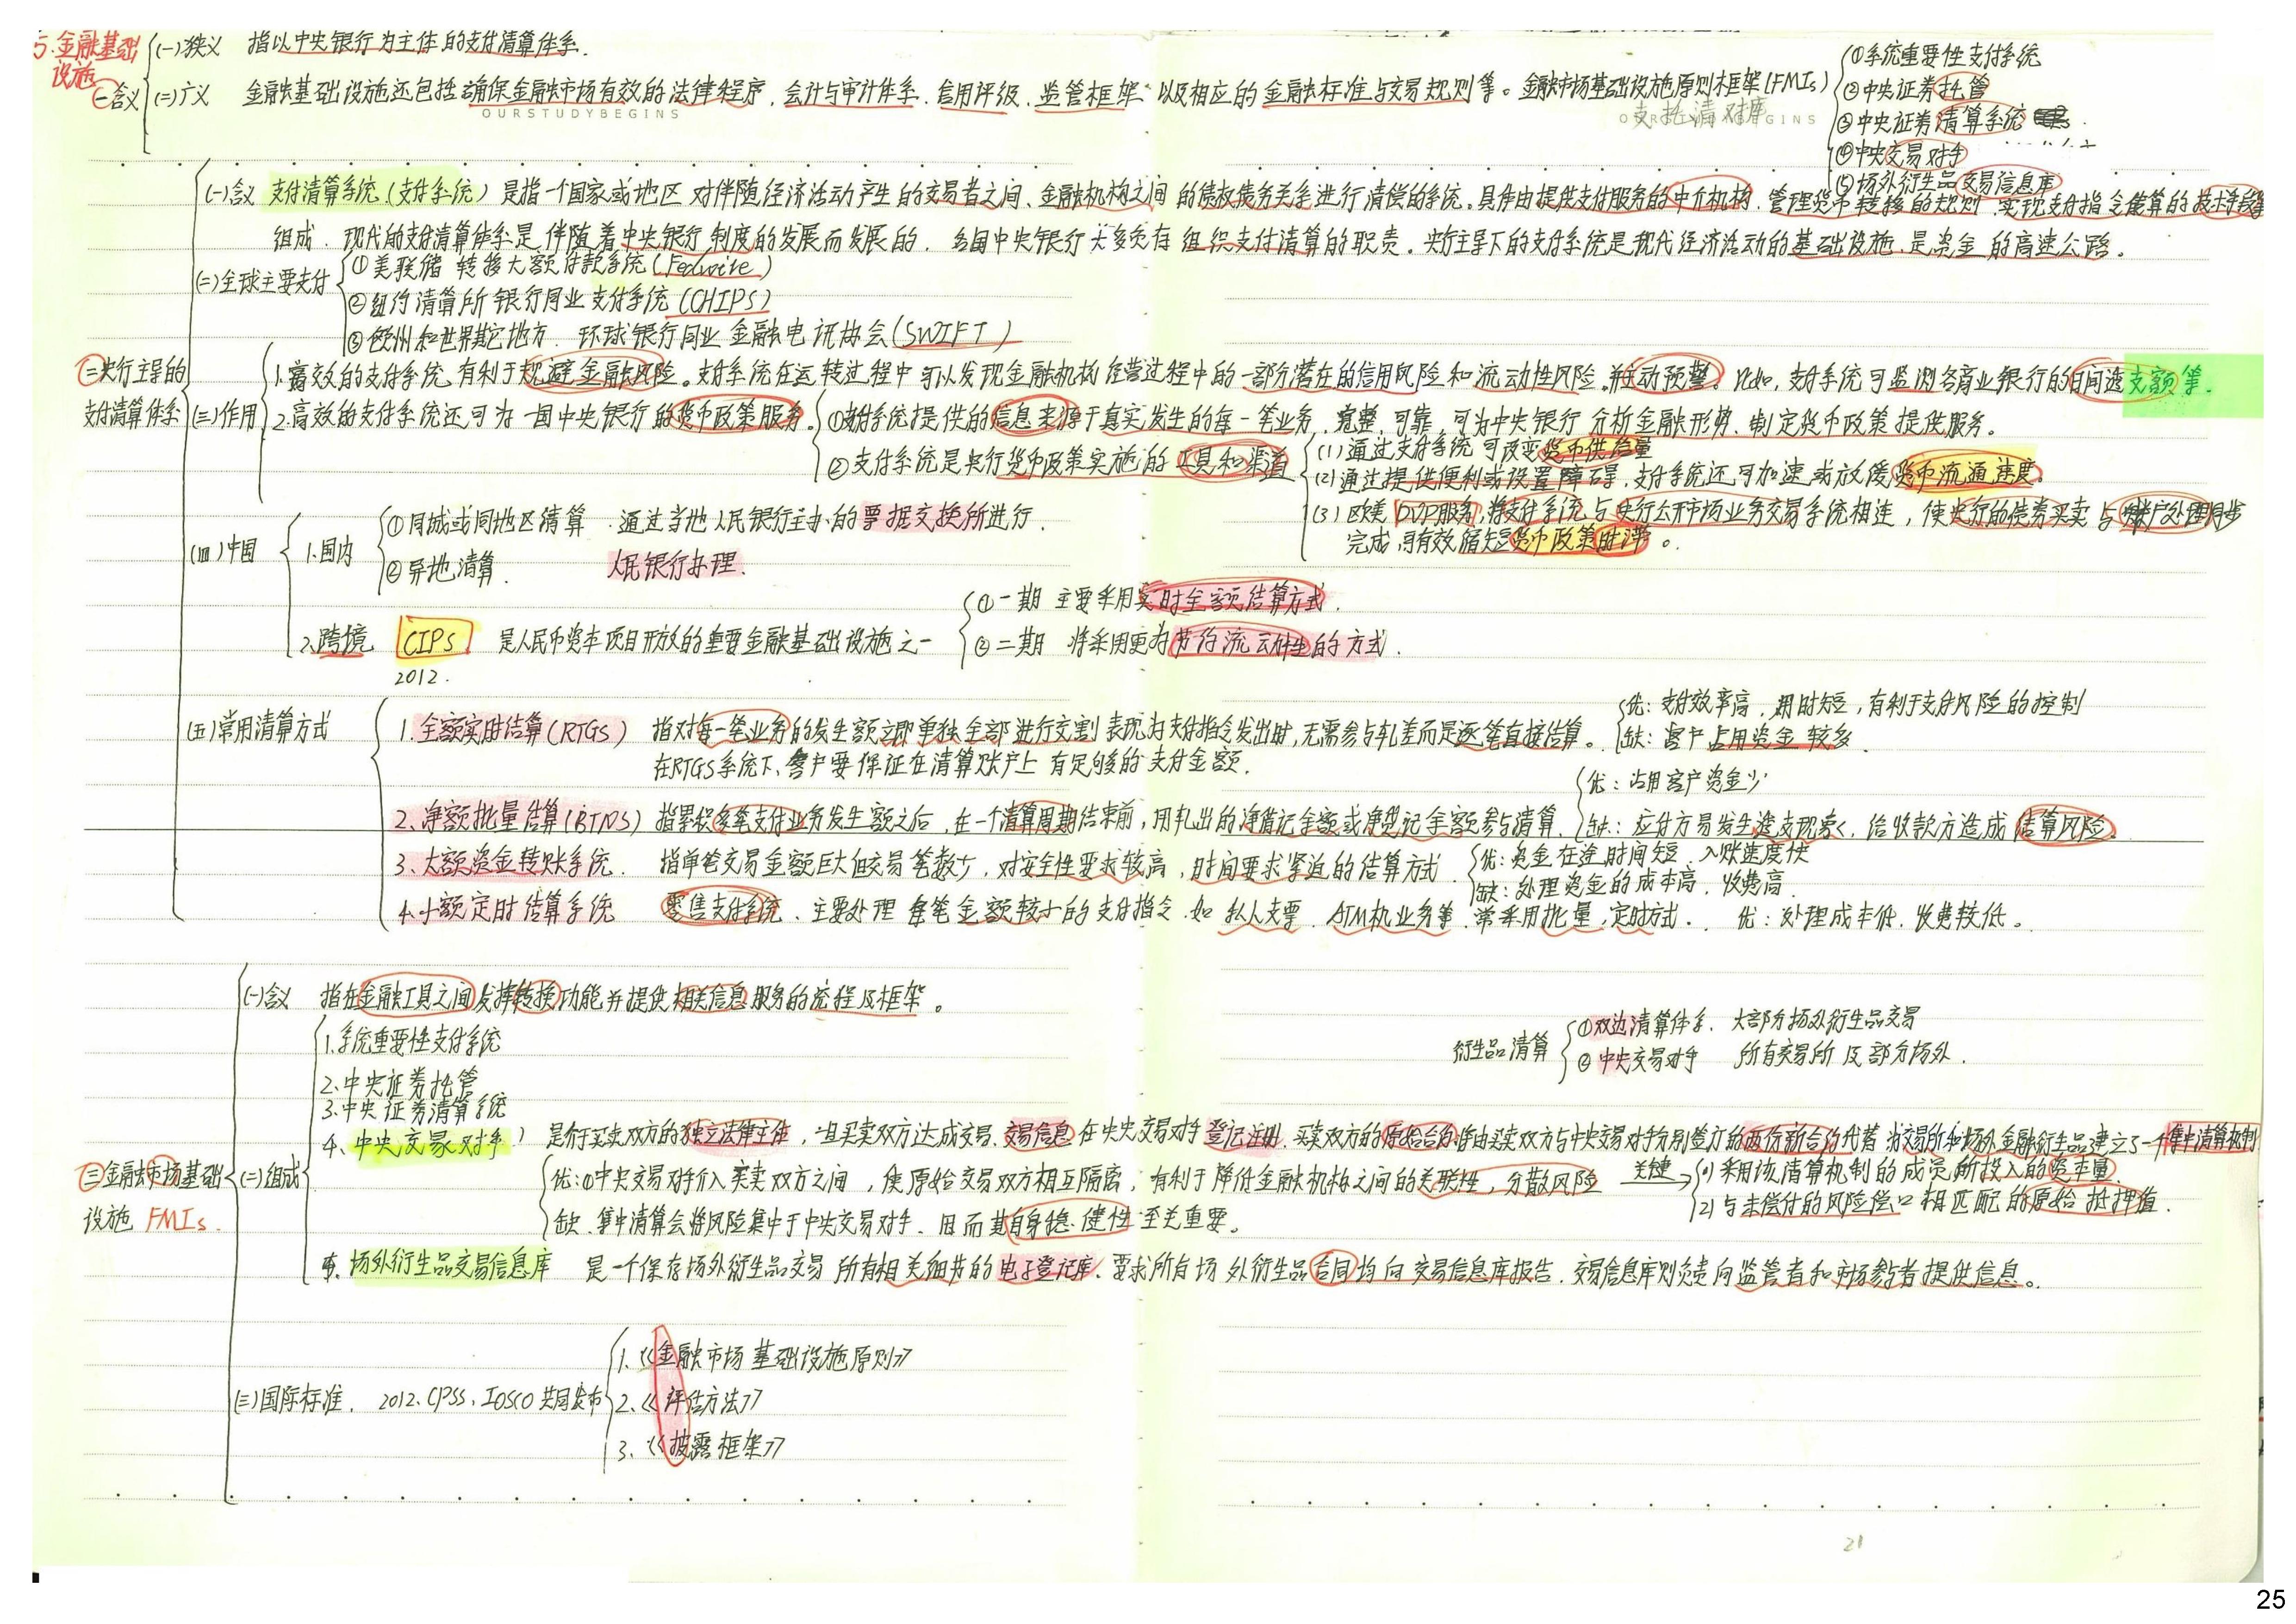 5.金融基础设施
一 含义
(一)狭义 指以中央银行为主体的支付清算体系.
(二)广义 金融基础设施还包括确保金融市场有效的法律程序、会计与审计体系、信用评级、监管框架以及相应的金融标准与交易规则等。金融市场基础设施原则框架(FMIs)
①系统重要性支付系统
②中央证券托管
③中央证券清算系统
④中央交易对手
⑤场外衍生品交易信息库
OURSTUDYBEGINS
支托清对库
二 央行主导的支付清算体系
(一)含义 支付清算系统(支付系统)是指一个国家或地区对伴随经济活动产生的交易者之间、金融机构之间的债权债务关系进行清偿的系统。具体由提供支付服务的中介机构、管理货币转移的规则、实现支付指令清算的技术手段等
组成.现代的支付清算体系是伴随着中央银行制度的发展而发展的.各国中央银行大多负有组织支付清算的职责。央行主导下的支付系统是现代经济活动的基础设施、是资金的高速公路。
(二)全球主要支付
①美联储 转移大额付款系统(Fedwire)
②纽约清算所银行同业支付系统(CHIPS)
③欧洲和世界其它地方.环球银行同业金融电讯协会(SWIFT)
(三)作用
1.高效的支付系统,有利于规避金融风险。支付系统在运转过程中可以发现金融机构经营过程中的一部分潜在的信用风险和流动性风险.并主动预警。比如,支付系统可监测各商业银行的日间透支额等.
2.高效的支付系统还可为一国中央银行的货币政策服务。
①支付系统提供的信息来源于真实发生的每一笔业务、完整、可靠,可为中央银行分析金融形势、制定货币政策提供服务。
②支付系统是央行货币政策实施的工具和渠道
(1)通过支付系统可改变货币供给量
(2)通过提供便利或设置障碍,支付系统还可加速或放缓货币流通速度。
(3)欧美DVP服务,将支付系统与央行公开市场业务交易系统相连,使央行的债券买卖与账户处理同步
完成,可有效缩短货币政策时滞。
(四)中国
1.国内
①同城或同地区清算.通过当地人民银行主办的票据交换所进行.
②异地清算. 人民银行办理.
2.跨境 CIPS 是人民币资本项目开放的重要金融基础设施之一
2012.
①一期 主要采用实时全额结算方式.
②二期 将采用更为节约流动性的方式.
(五)常用清算方式
1.全额实时结算(RTGS) 指对每一笔业务的发生额立即单独全部进行交割 表现为支付指令发出时,无需参与轧差而是逐笔直接结算。
在RTGS系统下、客户要保证在清算账户上有足够的支付金额.
优:支付效率高,用时短,有利于支付风险的控制
缺:客户占用资金较多.
2.净额批量结算(BTNS) 指累积多笔支付业务发生额之后,在一个清算周期结束前,用轧出的净借记金额或净贷记金额参与清算.
优:占用客户资金少
缺:应付方易发生透支现象,给收款方造成结算风险。
3.大额资金转账系统. 指单笔交易金额巨大但交易笔数少,对安全性要求较高,时间要求紧迫的结算方式.
优:资金在途时间短、入账速度快
缺:处理资金的成本高.收费高.
4.小额定时结算系统 零售支付系统、主要处理每笔金额较小的支付指令.如私人支票、ATM机业务等.常采用批量,定时方式. 优:处理成本低.收费较低。
三 金融市场基础设施 FMIs.
(一)含义 指在金融工具之间发挥转换功能并提供相关信息服务的流程及框架。
(二)组成
1.系统重要性支付系统
2.中央证券托管
3.中央证券清算系统
衍生品清算
①双边清算体系. 大部分场外衍生品交易
②中央交易对手 所有交易所及部分场外.
4.中央交易对手 是介于买卖双方的独立法律主体,当买卖双方达成交易、交易信息在中央交易对手登记注册,买卖双方的原始合约将由买卖双方与中央交易对手分别签订的两份新合约代替 为交易所和场外金融衍生品建立了一个集中清算机制
优:①中央交易对手介入买卖双方之间,使原始交易双方相互隔离,有利于降低金融机构之间的关联性,分散风险
关键
(1)采用该清算机制的成员所投入的资本量
(2)与未偿付的风险偿口相匹配的原始抵押值.
缺.集中清算会将风险集中于中央交易对手.因而其自身稳健性至关重要。
5.场外衍生品交易信息库 是一个保存场外衍生品交易所有相关细节的电子登记库.要求所有场外衍生品合同均向交易信息库报告.交易信息库则负责向监管者和市场参与者提供信息。
(三)国际标准. 2012、CPSS、IOSCO共同发布
1.《金融市场基础设施原则》
2.《评估方法》
3.《披露框架》
21
25